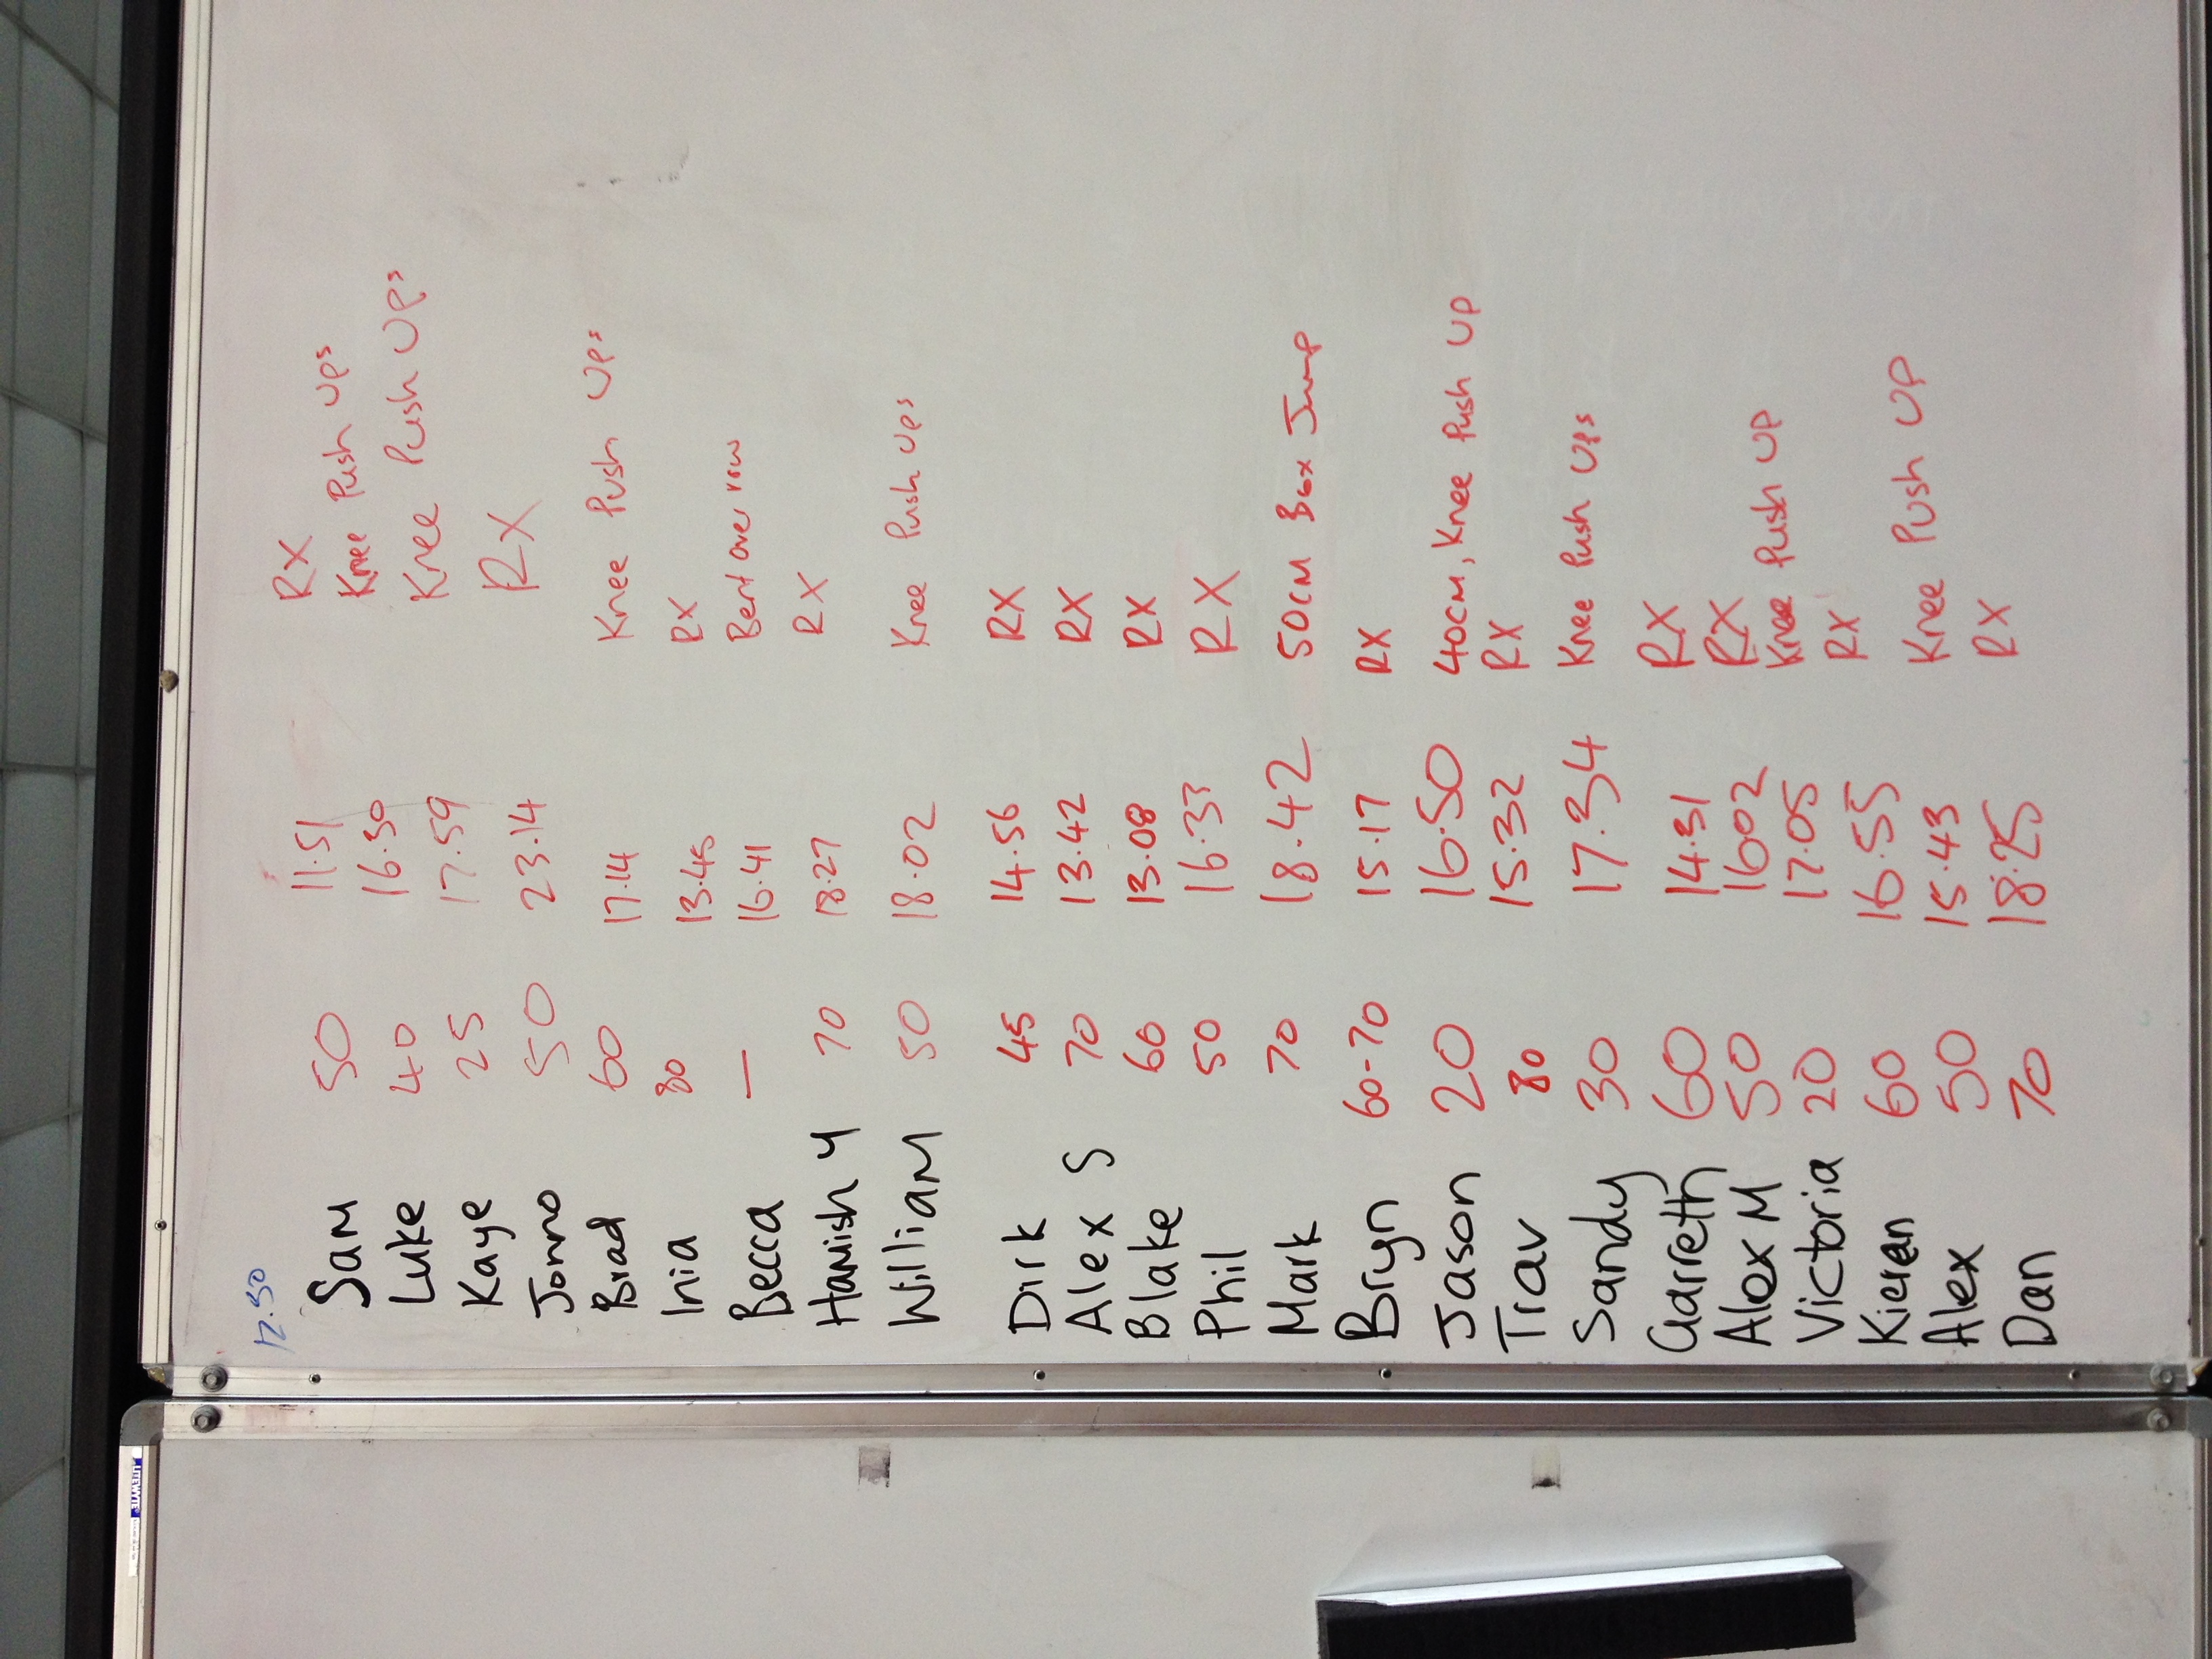 12.50
Sam 50 11.51 RX
Luke 40 16.30 Knee Push Ups
Kaye 25 17.59 Knee Push Ups
Jonno 50 23.14 RX
Brad 60 17.14 Knee Push Ups
Inia 80 13.45 RX
Becca — 16.41 Bent over row
Hamish Y 70 18.27 RX
William 50 18.02 Knee Push Ups
Dirk 45 14.56 RX
Alex S 70 13.42 RX
Blake 60 13.08 RX
Phil 50 16.33 RX
Mark 70 18.42 50cm Box Jump
Bryn 60-70 15.17 RX
Jason 20 16.50 40cm, Knee Push Up
Trav 80 15.32 RX
Sandy 30 17.34 Knee Push Ups
Garreth 60 14.31 RX
Alex M 50 1602 RX
Victoria 20 17.05 Knee Push Up
Kieren 60 16.55 RX
Alex 50 15.43 Knee Push Up
Dan 70 18.25 RX
LITEWYTE